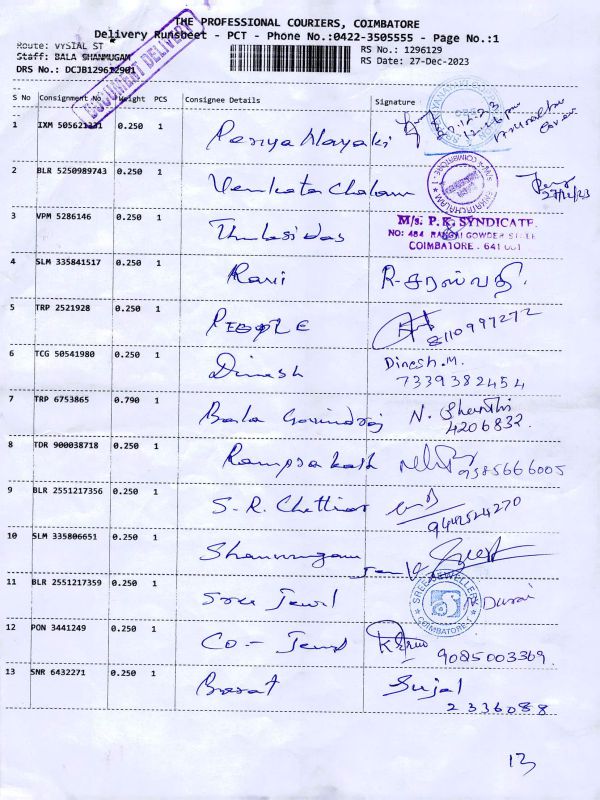 THE PROFESSIONAL COURIERS, COIMBATORE
Delivery Runsheet - PCT - Phone No.:0422-3505555 - Page No.:1
Route: VYSIAL ST
Staff: BALA SHANMUGAM
DRS No.: DCJB129612901
RS No.: 1296129
RS Date: 27-Dec-2023
DOCUMENT DELIVERY
S No Consignment No Weight PCS Consignee Details Signature
1 IXM 505621231 0.250 1 Periya Nayaki
2 BLR 5250989743 0.250 1 Venkata Chalam 27/12/23
3 VPM 5286146 0.250 1 Thulasidas
M/s. P.K. SYNDICATE
NO: 484 RANGAI GOWDER STREE
COIMBATORE - 641 001
4 SLM 335841517 0.250 1 Rani R-சரஸ்வதி.
5 TRP 2521928 0.250 1 PEOPLE 8110997272
6 TCG 50541980 0.250 1 Dinesh Dinesh.M.
7339382454
7 TRP 6753865 0.790 1 Bala Govindraj N. Shanthi
4206832.
8 TDR 900038718 0.250 1 Ramprakash 9585666005
9 BLR 2551217356 0.250 1 S.R. Chettiar
9442524270
10 SLM 335806651 0.250 1 Shanmugam
11 BLR 2551217359 0.250 1 Sree Jewel Durai
SREE JEWELLERY
COIMBATORE-1
12 PON 3441249 0.250 1 Co-Jewel
9085003369.
13 SNR 6432271 0.250 1 Barat Sujal
2336088
13